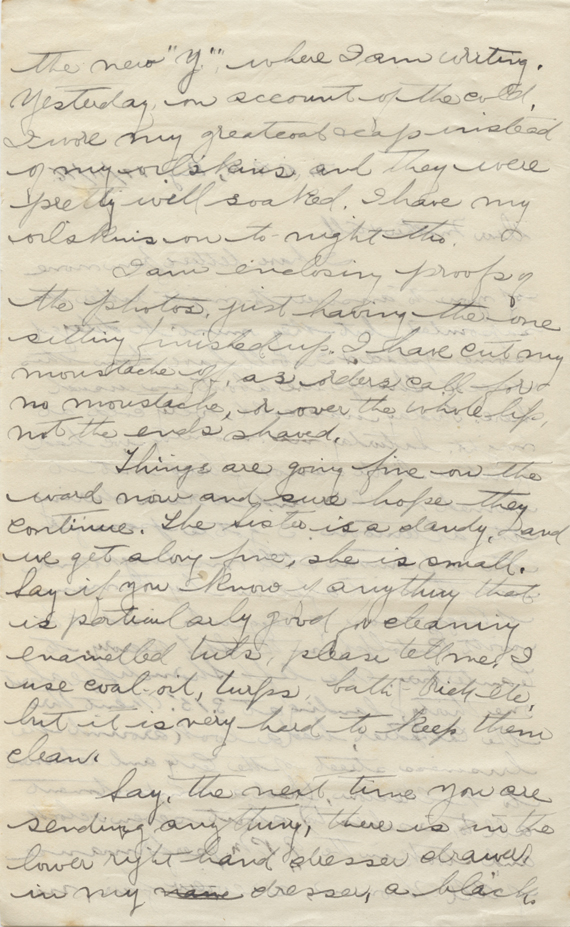 the new "Y", where I am writing.
Yesterday, on account of the cold,
I wore my greatcoat & cap instead
of my oilskins, and they were
pretty well soaked. I have my
oilskins on to-night tho.
I am enclosing proofs of
the photos, just having the one
sitting finished up. I have cut my
moustache off, as orders call for
no moustache, or over the whole lip,
not the ends shaved.
Things are going fine on the
ward now and sure hope they
continue. The Sister is a dandy, and
we get along fine, she is small.
Say if you know of anything that
is particularly good for cleaning
enamelled tubs, please tell me. I
use coal-oil, turps, bath-brick etc,
but it is very hard to keep them
clean.
Say, the next time you are
sending anything, there is in the
lower right hand dresser drawer
in my dresser, a black